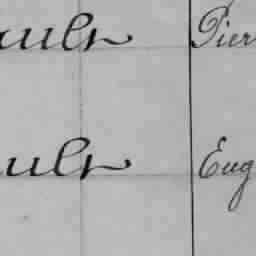 ault Pier
ault Eug